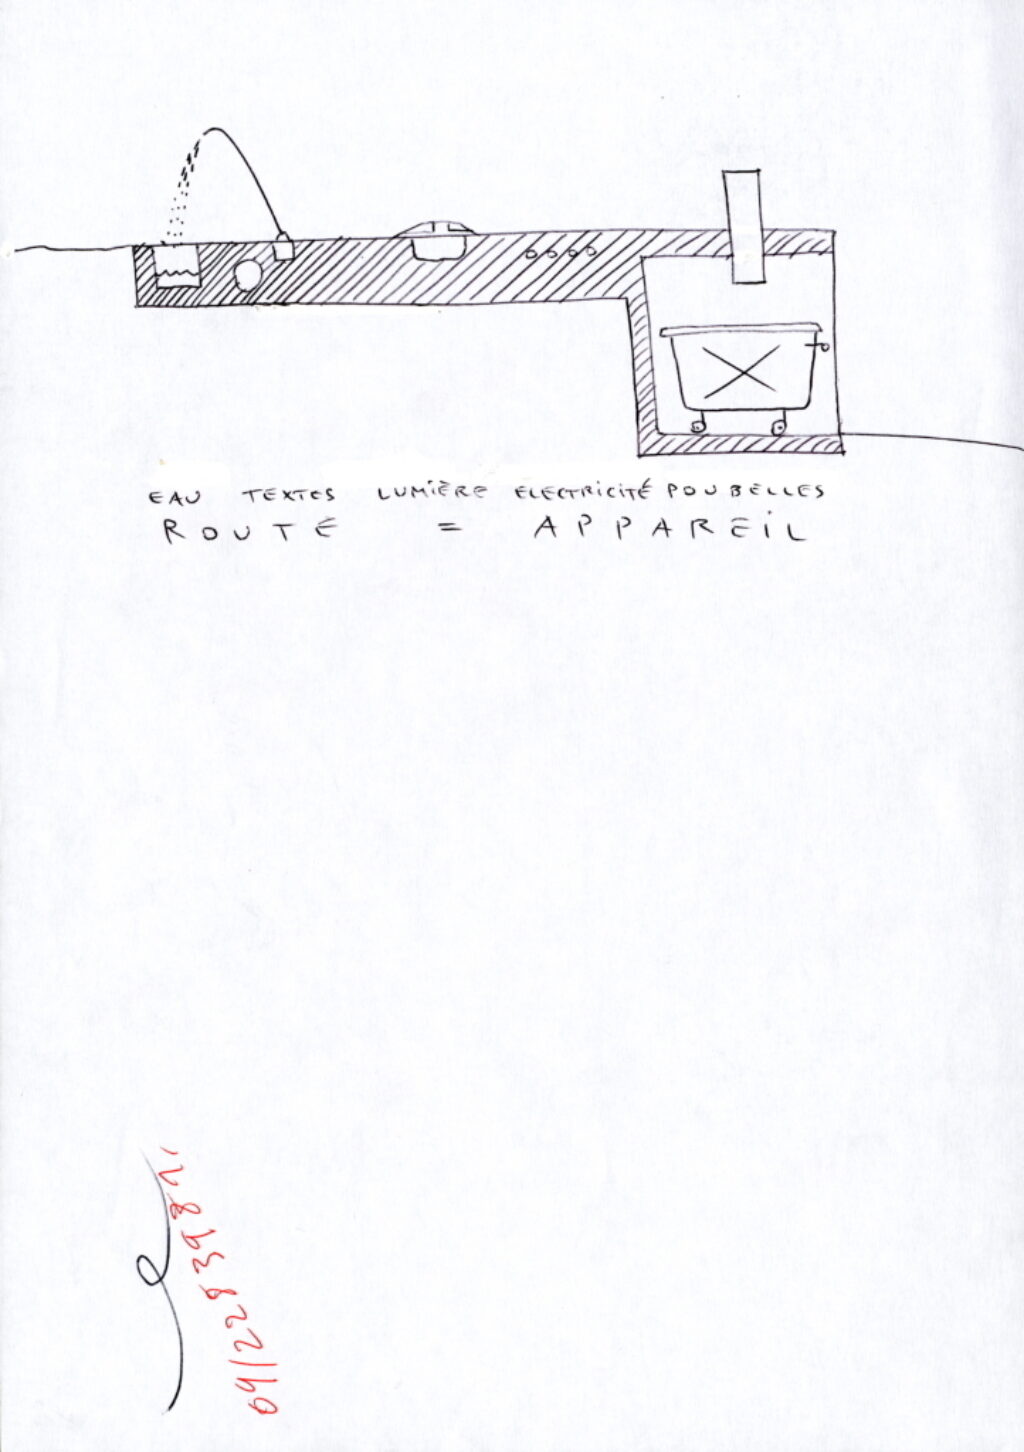 EAU TEXTES LUMIÈRE ELECTRICITÉ POUBELLES
ROUTE = APPAREIL
09/2283982